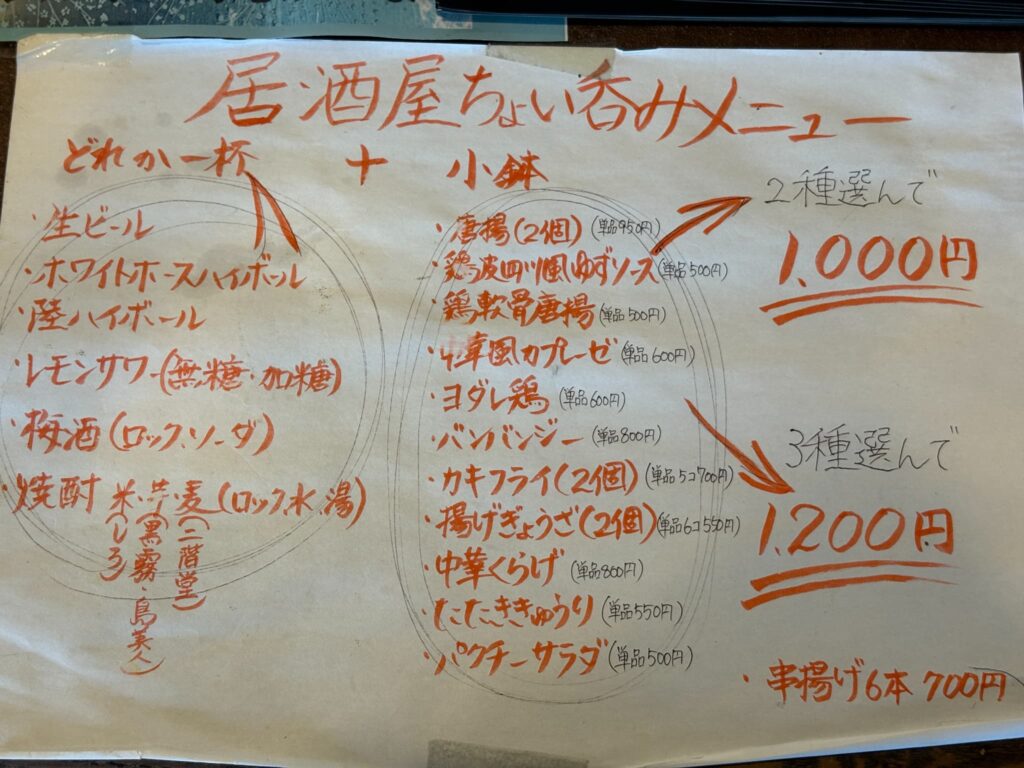 居酒屋ちょい呑みメニュー
どれか一杯 + 小鉢
・生ビール
・ホワイトホースハイボール
・陸ハイボール
・レモンサワー(無糖・加糖)
・梅酒(ロック、ソーダ)
・焼酎 米・芋・麦(ロック、水、湯)
(しろ)
(黒霧・島美人)
(二階堂)
・唐揚(2個)(単品950円)
・鶏皮四川風ゆずソース(単品500円)
・鶏軟骨唐揚(単品500円)
・中華風カプレーゼ(単品600円)
・ヨダレ鶏(単品600円)
・バンバンジー(単品800円)
・カキフライ(2個)(単品5コ700円)
・揚げぎょうざ(2個)(単品6コ550円)
・中華くらげ(単品800円)
・たたききゅうり(単品550円)
・パクチーサラダ(単品500円)
2種選んで
1.000円
3種選んで
1.200円
・串揚げ6本 700円